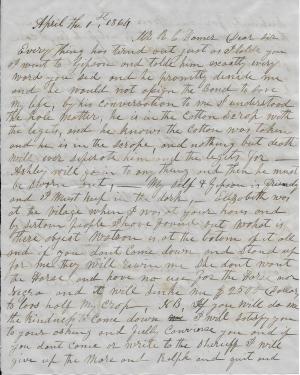 April the 1st 1864
Mr R C Somer Dear Sir
Every thing has turnd out just as I tolde you
I went to Gipson and tolde him exactly every
word you sed and he promtly denide me
and he would not asign the Bond to Save
My life, by his conversation to me I understood
the hole Matter, he is in the Cotton Scrap with
the legeis, and he knows the Cotton was taken
and he is in the Scrape, and nothing but death
will ever seperate him and the legeis for
Ashley will go in to any thing and then he must
be Sworn out, My Self & Gipson is friends
and I Must keep in the dark, Elizabeth was
at the vilage when I was at your hous and
by sirton people I have found out What is
there object Watson is at the botom of it all
and if you dont come down and Stand up
for me they will ruin me She dont want
the Horse and have no use for the Horse nor
and it will Sinke Me $2500 Dollars
to loss half My Crop, N.B, If you will do me
the Kindness to come down I will Satisfy you
to your asking and fully Convince you and if
you dont come or write to the Sheriff I will
give up the Mare and and quit and